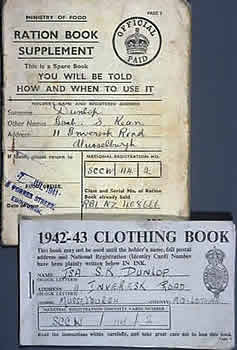 PAGE 1
MINISTRY OF FOOD
RATION BOOK
SUPPLEMENT
OFFICIAL
PAID
This is a Spare Book
YOU WILL BE TOLD
HOW AND WHEN TO USE IT
HOLDER'S NAME AND REGISTERED ADDRESS
Surname Dunlop
Other Names
Address 11 Inveresk Road
Musselburgh
If found, please return to
NATIONAL REGISTRATION NO.
SCCW 114 2
1941
FORRES STREET,
EDINBURGH
Class and Serial No. of Ration
Book already held
1942-43 CLOTHING BOOK
This book may not be used until the holder's name, full postal
address and National Registration (Identity Card) Number
have been plainly written below IN INK.
NAME ISA S.K DUNLOP
(BLOCK LETTERS)
ADDRESS 11 INVERESK ROAD
(BLOCK LETTERS)
MUSSELBURGH
NATIONAL REGISTRATION (IDENTITY CARD) NUMBER
SCCW
Read the instructions within carefully, and take great care not to lose this book.